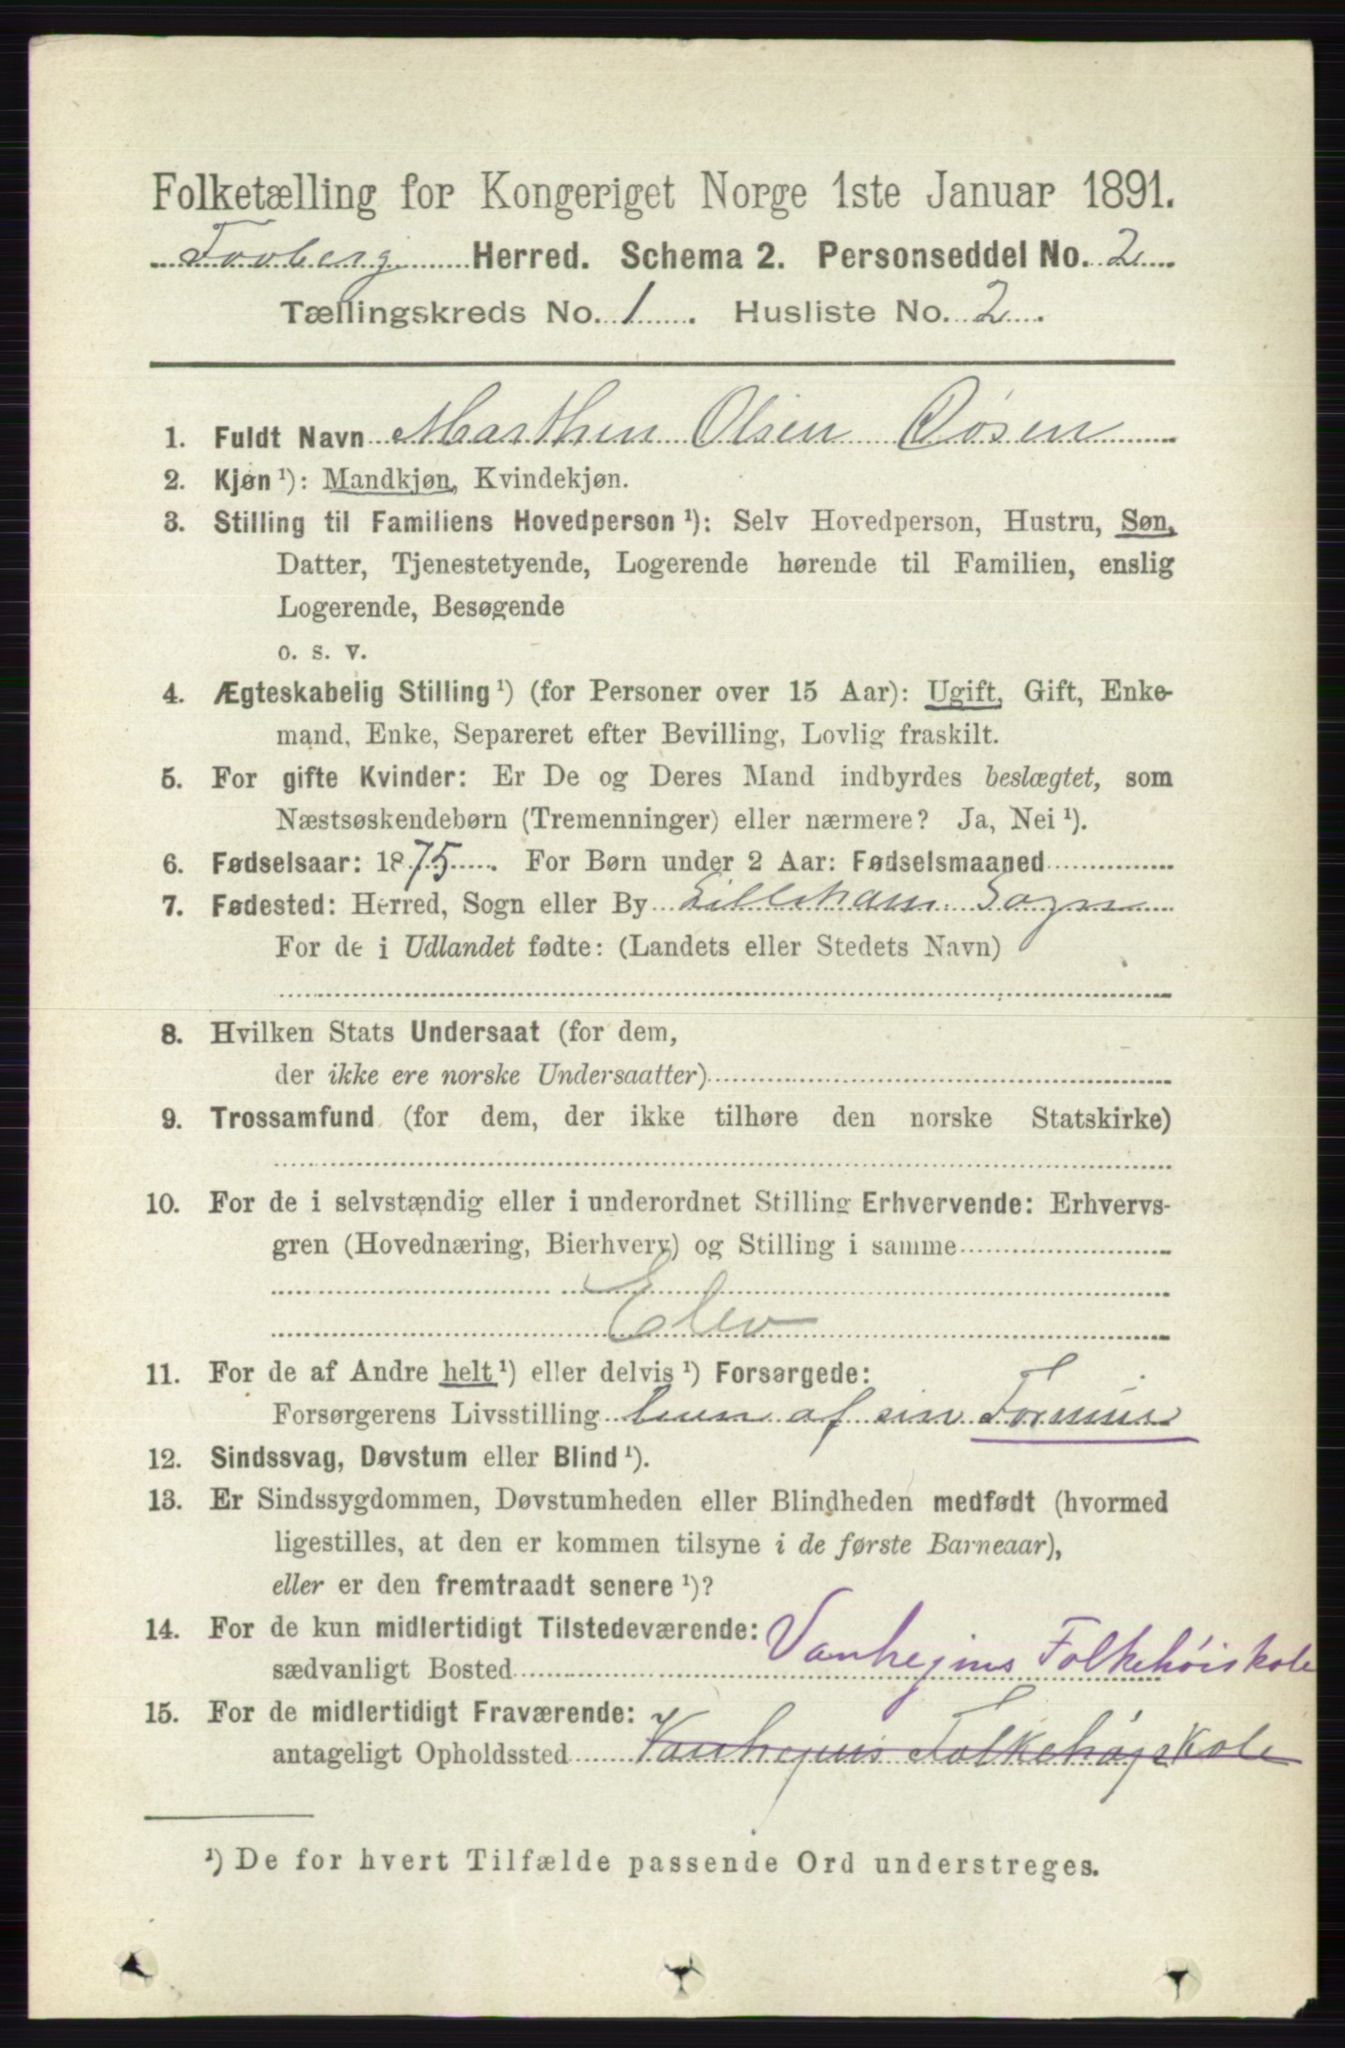 Folketælling for Kongeriget Norge 1ste Januar 1891.
Faaberg Herred. Schema 2. Personseddel No. 2
Tællingskreds No. 1. Husliste No. 2.
1. Fuldt Navn Marthin Olsen Røsen
2. Kjøn ¹): Mandkjøn, Kvindekjøn.
3. Stilling til Familiens Hovedperson ¹): Selv Hovedperson, Hustru, Søn,
Datter, Tjenestetyende, Logerende hørende til Familien, enslig
Logerende, Besøgende
o. s. v.
4. Ægteskabelig Stilling ¹) (for Personer over 15 Aar): Ugift, Gift, Enke-
mand, Enke, Separeret efter Bevilling, Lovlig fraskilt.
5. For gifte Kvinder: Er De og Deres Mand indbyrdes beslægtet, som
Næstsøskendebørn (Tremenninger) eller nærmere? Ja, Nei ¹).
6. Fødselsaar: 1875. For Børn under 2 Aar: Fødselsmaaned
7. Fødested: Herred, Sogn eller By Lilleham Sogn
For de i Udlandet fødte: (Landets eller Stedets Navn)
8. Hvilken Stats Undersaat (for dem,
der ikke ere norske Undersaatter)
9. Trossamfund (for dem, der ikke tilhøre den norske Statskirke)
10. For de i selvstændig eller i underordnet Stilling Erhvervende: Erhvervs-
gren (Hovednæring, Bierhverv) og Stilling i samme
Elev
11. For de af Andre helt ¹) eller delvis ¹) Forsørgede:
Forsørgerens Livsstilling af sin Formue
12. Sindssvag, Døvstum eller Blind ¹).
13. Er Sindssygdommen, Døvstumheden eller Blindheden medfødt (hvormed
ligestilles, at den er kommen tilsyne i de første Barneaar),
eller er den fremtraadt senere ¹)?
14. For de kun midlertidigt Tilstedeværende:
sædvanligt Bosted Vonhejms Folkehöiskole
15. For de midlertidigt Fraværende:
antageligt Opholdssted Vonhejms Folkehøgskole
¹) De for hvert Tilfælde passende Ord understreges.